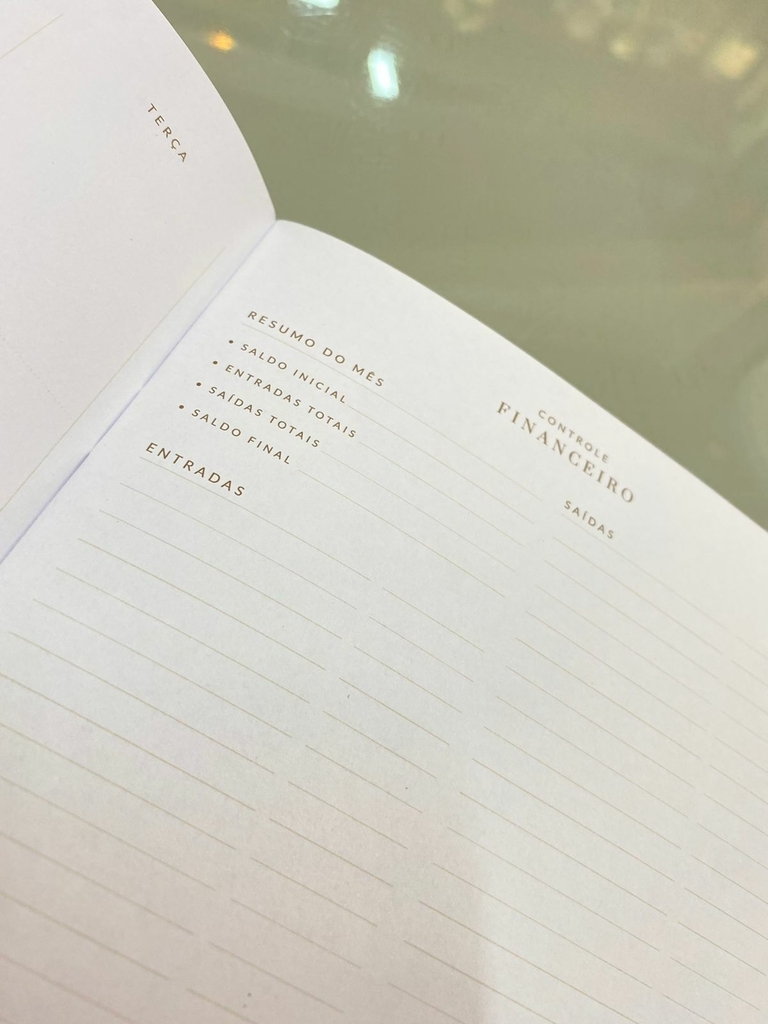 TERÇA
RESUMO DO MÊS
• SALDO INICIAL
• ENTRADAS TOTAIS
• SAÍDAS TOTAIS
• SALDO FINAL
ENTRADAS
CONTROLE
FINANCEIRO
SAÍDAS